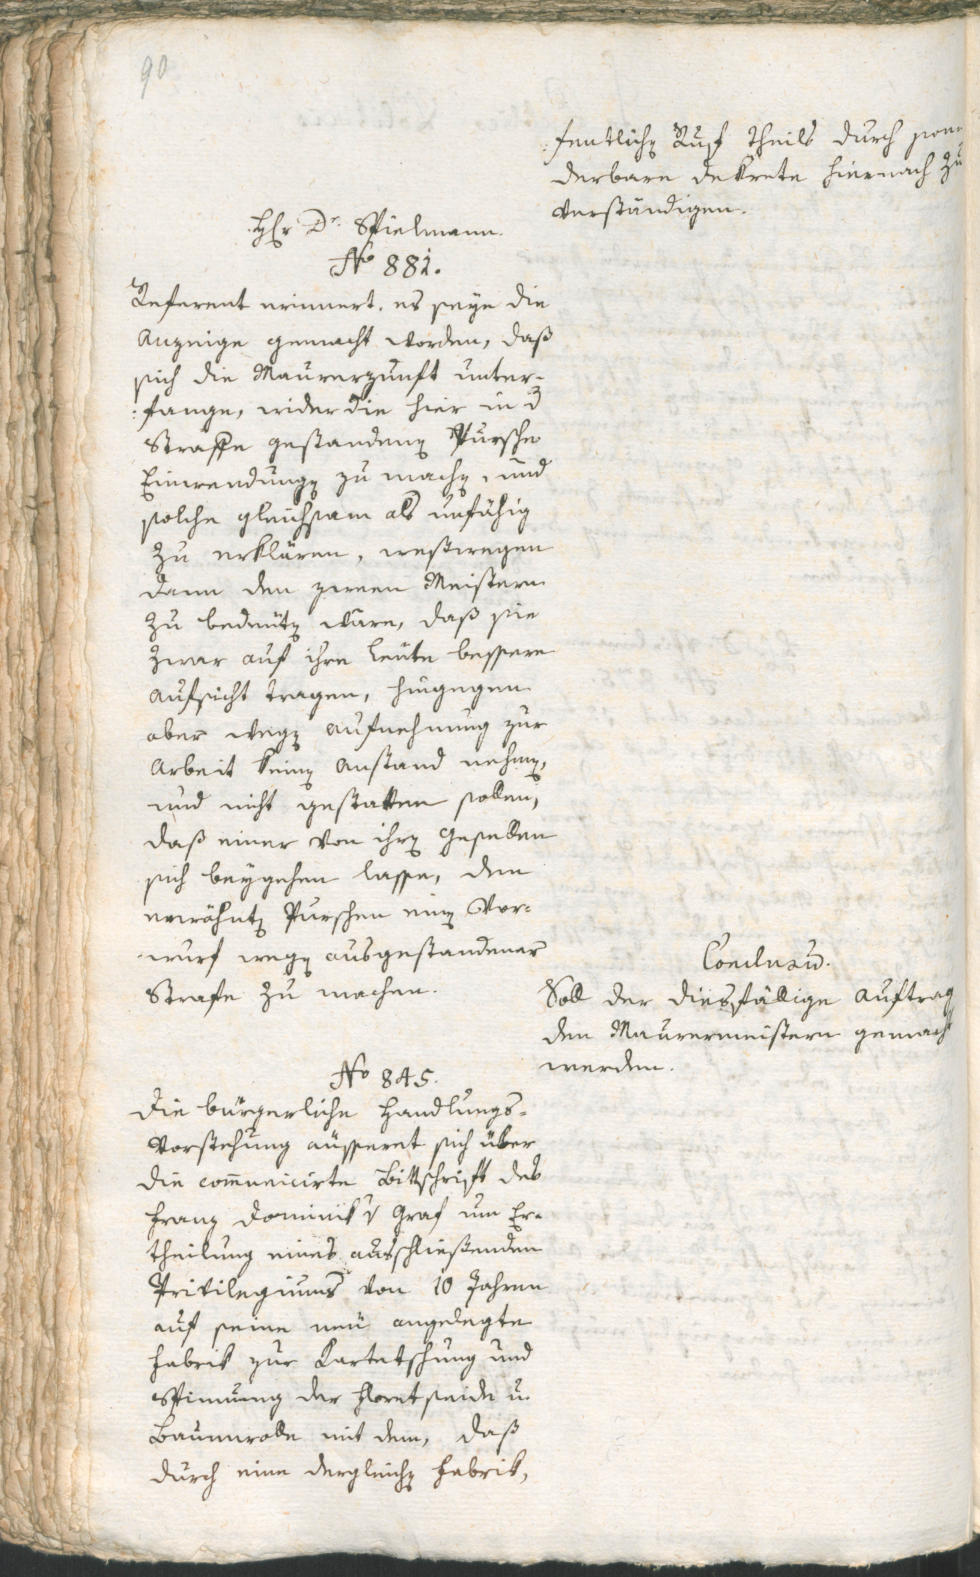 90
:fentlichen Ruf theils durch son=
derbare Dekrete hiernach zu
verständigen.
Hr Dr. Spielmann.
No 881.
Referent erinnert, es seye die
Anzeige gemacht worden, daß
sich die Maurerzunft unter=
:fange, wider die hier in d
Strafe gestandenen Pursche
Einwendungen zu machen, und
solche gleichsam als unfähig
zu erklären, weßwegen
dann den zween Meistern
zu bedeuten wäre, daß sie
zwar auf ihre Leute bessere
Aufsicht tragen, hingegen
aber wegen Aufnehmung zur
Arbeit keinen Anstand nehmen,
und nicht gestatten sollen,
daß einer von ihren Gesellen
sich beygehen lasse, den
erwähnten Purschen einen Vor=
wurf wegen ausgestandener
Strafe zu machen.
Conclusum.
Soll der diesfällige Auftrag
den Maurermeistern gemacht
werden.
No 845.
Die bürgerliche Handlungs=
Vorstehung äusseret sich über
die comunicirte Bittschrift des
Franz Dominik v Graf um Er=
theilung eines ausschließenden
Privilegiums von 10 Jahren
auf seine neu angelegte
Fabrik zur Kartatschung und
Spinnung der Floretseide u.
Baumwolle mit dem, daß
durch eine dergleichen Fabrik,